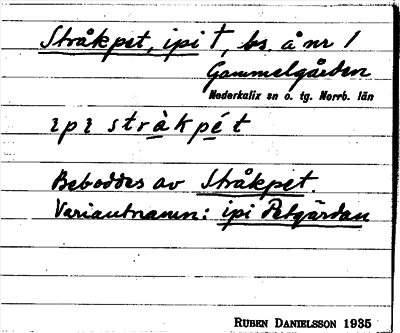 Stråkpet, ipi †, bs. å nr 1
Gammelgården
Nederkalix sn o. tg. Norrb. län
ipi stràkpét
Beboddes av Stråkpet.
Variantnamn: ipi Petgårdan
RUBEN DANIELSSON 1935